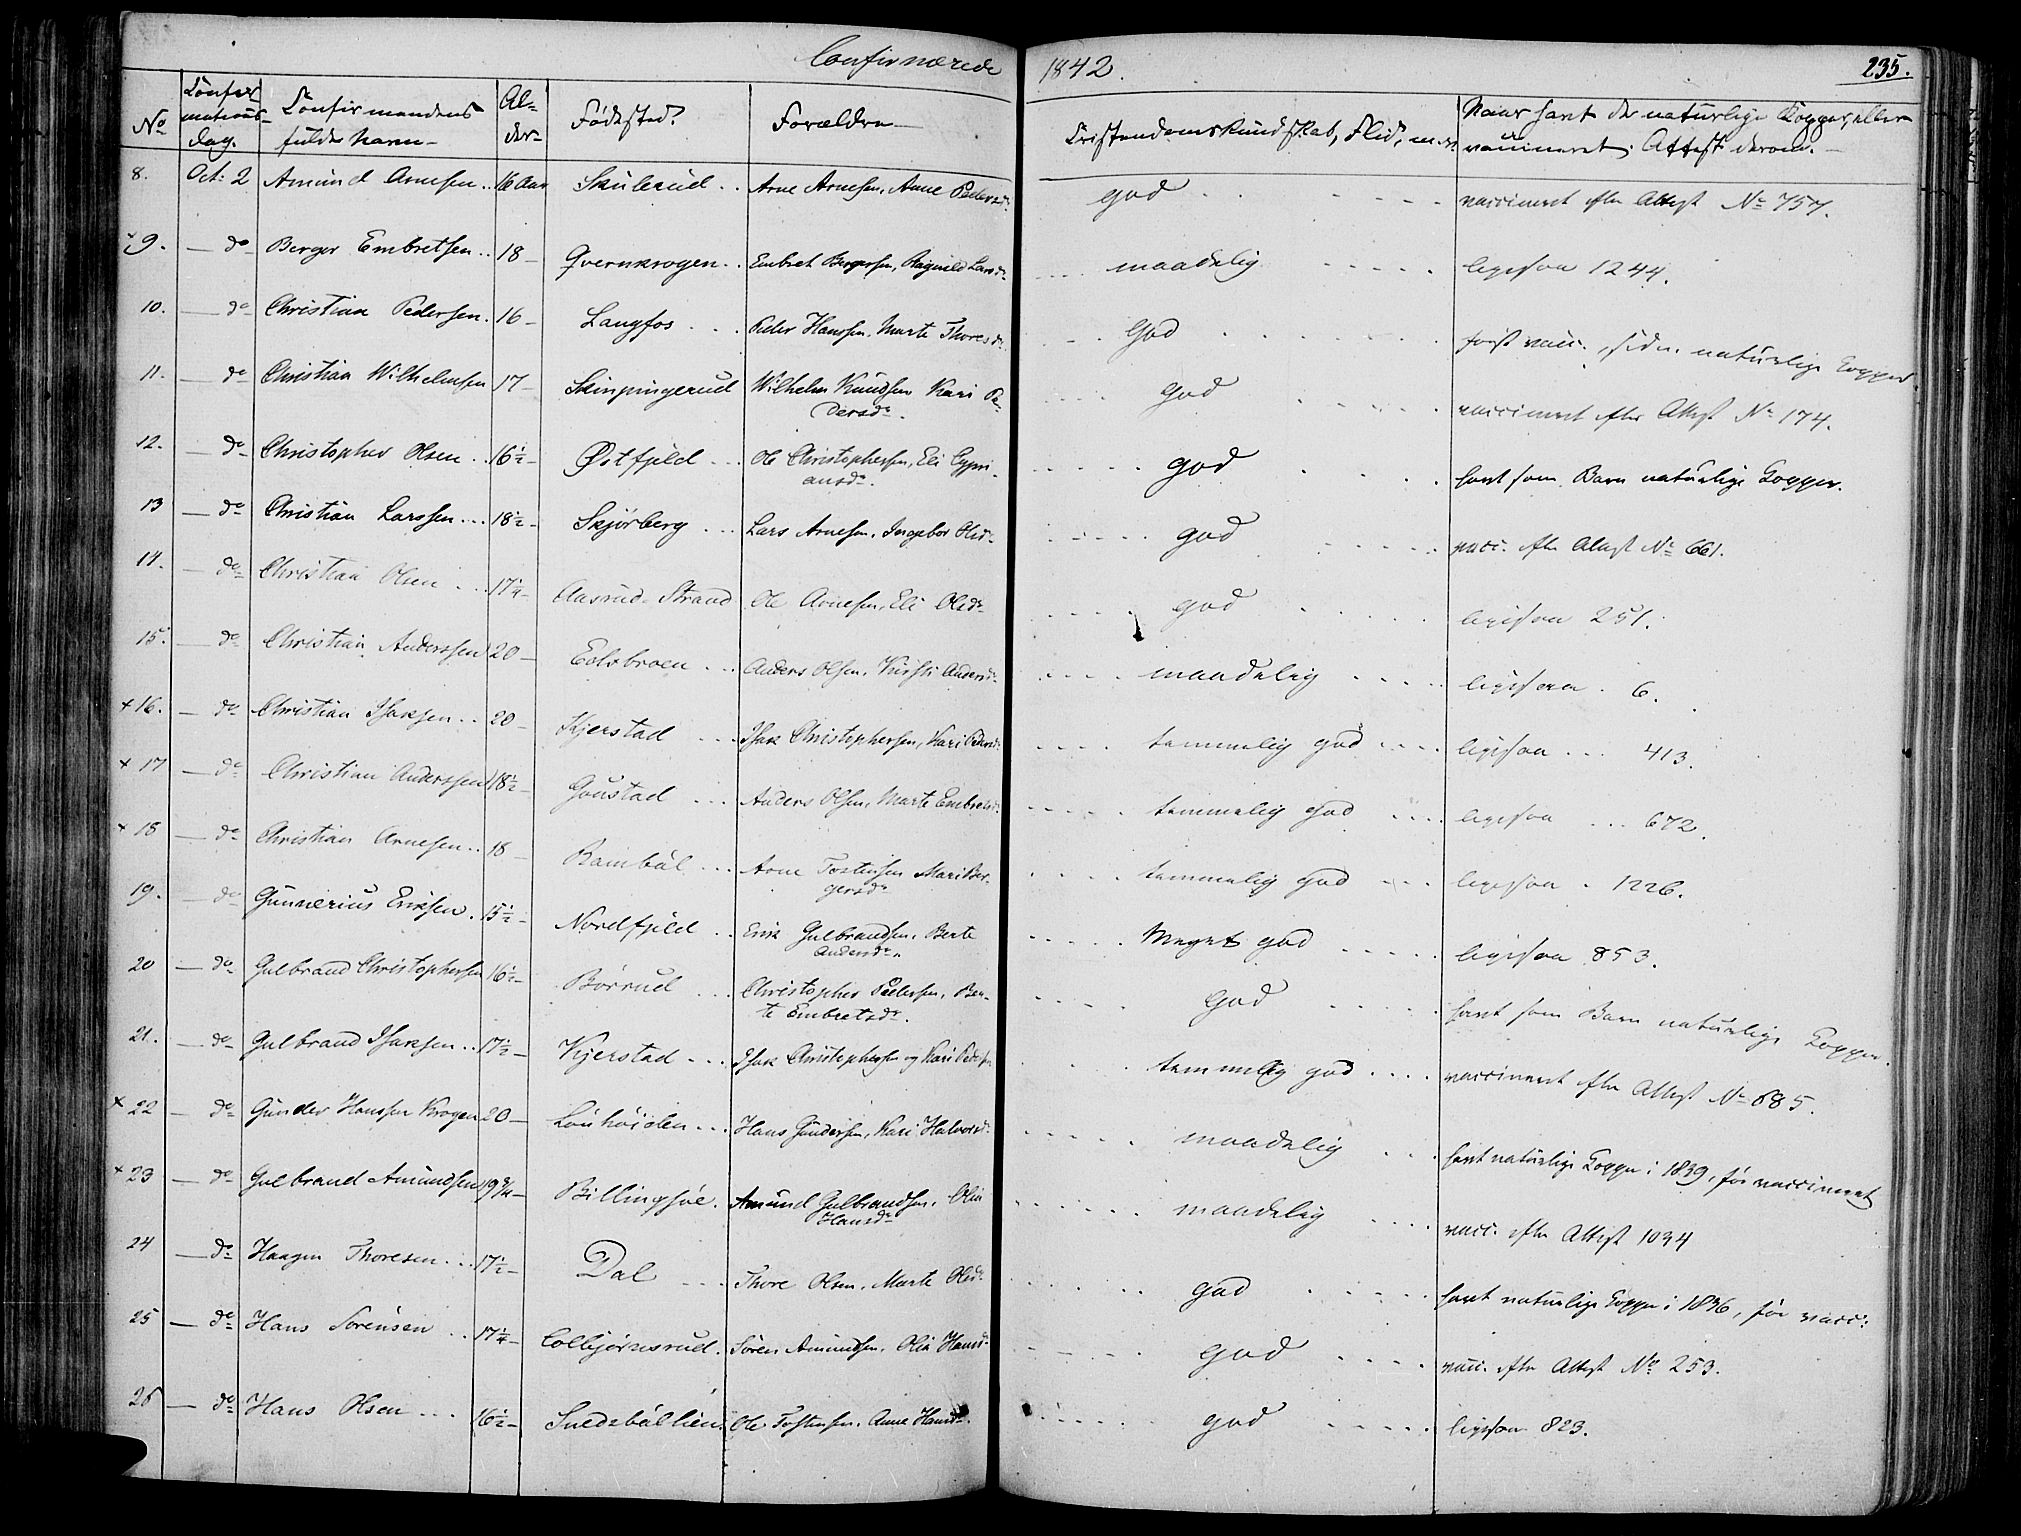 Confirmerede 1842. 235.
No Confirmations-Dag. Confirmandens fulde Navn Alder Fødested. Forældre Cristendomskundskab, Flid, m.v. Naar havt de naturlige Kopper, eller vaccineret. Attest derom.
8. Oct: 2 Amund Arnesen .. 16 Aar Skulerud .. Arne Arnesen, Anne Pedersdr god vaccineret efter Attest No 757.
9. — do Berger Embretsen .. 18 — Qvernkrogen .. Embret Bergersen, Ragnild Larsdr maadelig ligesaa 1244.
10. — do Christian Pedersen. 16 — Langfos ... Peder Hanssen, Marte Thoresdr. God først vacc., siden naturlige Kopper.
11. — do Christian Wilhelmsen 17 — Skinpingerud Wilhelm Knudsen Kari Pedersdr. god vaccineret efter Attest No 174.
12. — do Christopher Olsen .. 16½ — Østfjeld ... Ole Christophersen, Eli Cypriansdr. god havt som Barn naturlige Kopper.
13 — do Christian Larssen ... 18½ — Skjørberg ... Lars Arnesen, Ingebor Olsdr god vacc. efter Attest No 661.
14. — do Christian Olsen ... 17¼ — Aasrud-Strand Ole Arnesen, Eli Olsdr god ligesaa 251.
15. — do Christian Anderssen 20 — Eidsbroen ... Anders Olsen, Kirsti Andersdr maadelig ligesaa . 6.
+ 16. — do Christian Isaksen .. 20 — Kjerstad ... Isak Christophersen, Kari Pedersdr temmelig god ligesaa ... 413.
+ 17 — do Christian Anderssen 18½ — Goustad ... Anders Olsen, Marte Embretsdr temmelig god ligesaa ... 672.
+ 18 — do Christian Arnesen .. 18 — Rambøl ... Arne Tostensen Mari Bergersdr temmelig god ligesaa . 1226.
19. — do Gunnerius Eriksen. 15½ — Nordfjeld .. Erik Gulbrandsen, Berte Andersdr. Meget god ligesaa 853.
20 — do Gulbrand Christophersen 16½ — Børrud ... Christopher Pedersen, Berte Embretsdr. God havt som Barn naturlige Kopper.
21. — do Gulbrand Isaksen .. 17½ — Kjerstad ... Isak Christophersen og Kari Pedersdr temmelig god vaccineret efter Attest No 685.
× 22 — do Gunder Hanssen Krogen 20 — Louhøiden ... Hans Gundersen, Kari Halvorsdr maadelig havt naturlige Kopper i 1839, før vaccineret
+ 23 — do Gulbrand Amundsen 19¾ — Billingsøe. Amund Gulbrandsen, Olia Hansdr maadelig vacc. efter Attest 1034
24 — do Haagen Thoresen ... 17½ — Dal ... Thore Olsen, Marte Olsdr god havt naturlige Kopper i 1836, før vacc:
25 — do Hans Sørensen .. 17¼ — Colbjørnsrud. Søren Amundsen, Olia Hansdr god vacc. efter Attest No 253.
26 — do Hans Olsen ... 16½ — Snedsbøllien. Ole Tostensen, Anne Hansdr. god ligesaa 823.